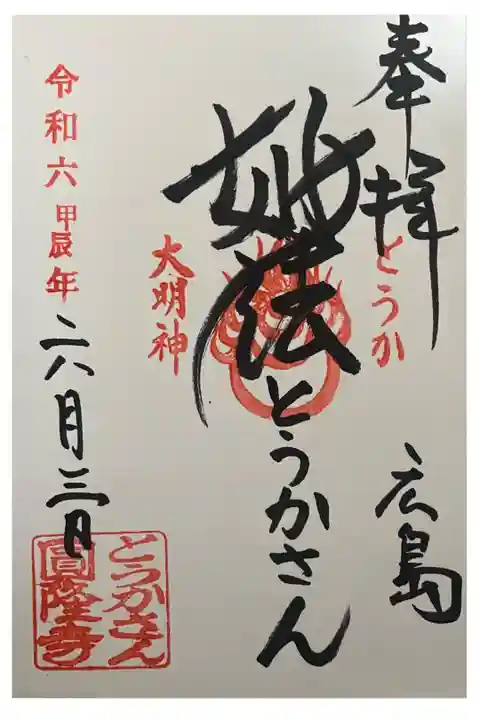 奉拝
とうか
広島
妙法とうかさん
大明神
令和六甲辰年六月三日
とうかさん
圓隆寺